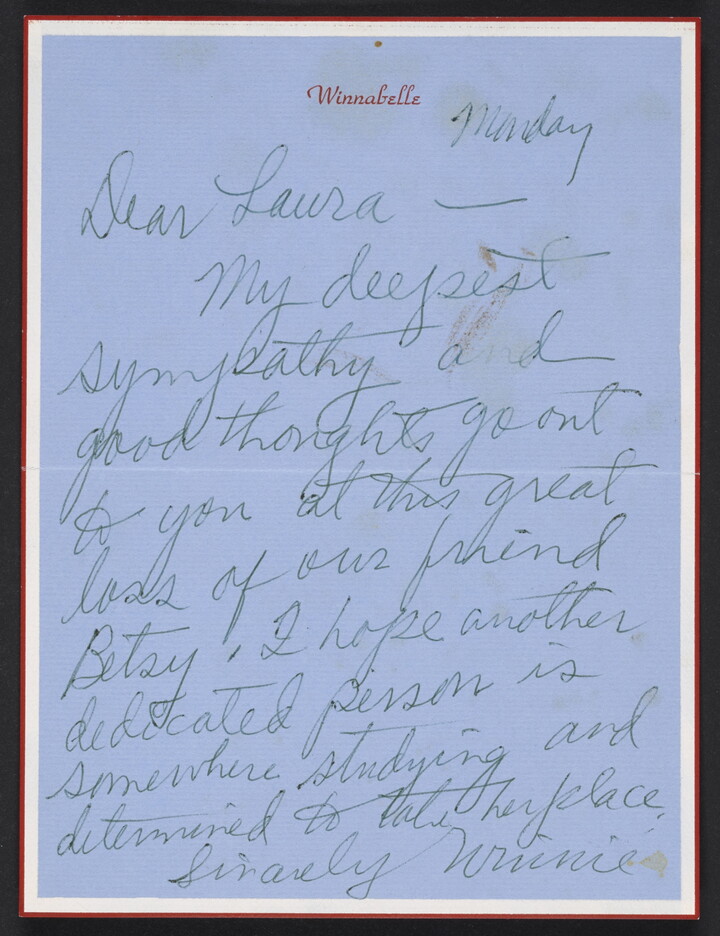 Winnabelle
Monday
Dear Laura —
My deepest
sympathy and
good thoughts go out
to you at this great
loss of our friend
Betsy. I hope another
dedicated person is
somewhere studying and
determined to take her place.
Sincerely Winnie